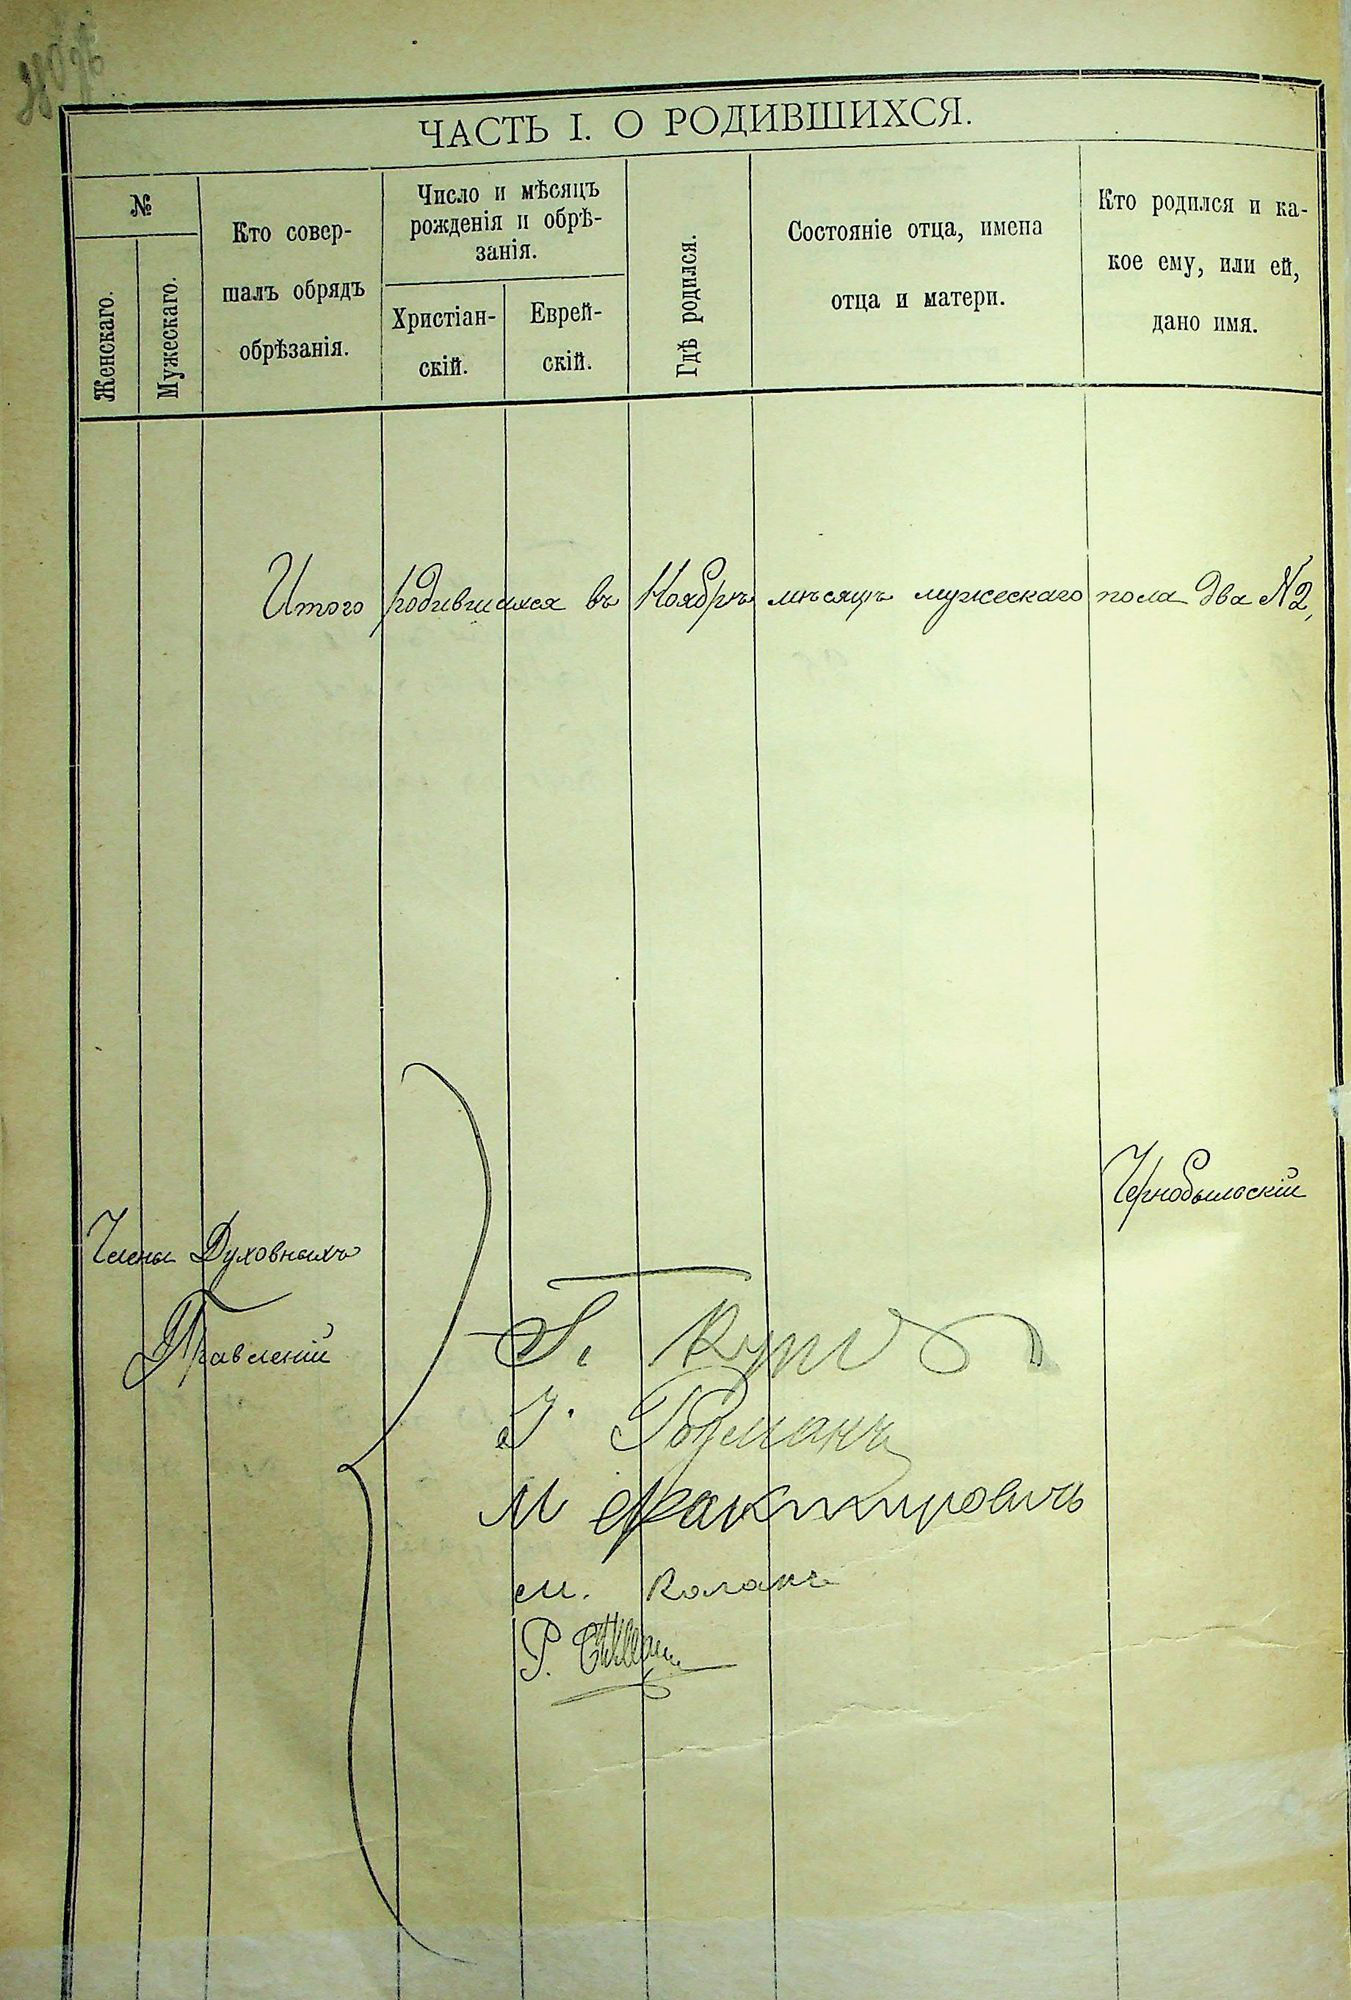 ЧАСТЬ I. О РОДИВШИХСЯ.
№
Женскаго.
Мужескаго.
Кто совер-
шалъ обрядъ
обрѣзанія.
Число и мѣсяцъ
рожденія и обрѣ-
занія.
Христіан-
скій.
Еврей-
скій.
Гдѣ родился.
Состояніе отца, имена
отца и матери.
Кто родился и ка-
кое ему, или ей,
дано имя.
Итого родившихся въ Ноябрѣ мѣсяцѣ мужескаго пола два № 2,
Чернобыльскій
Члены Духовныхъ
Правленій
І. Гозманъ
М Фактировичъ
М. Коганъ
Р.